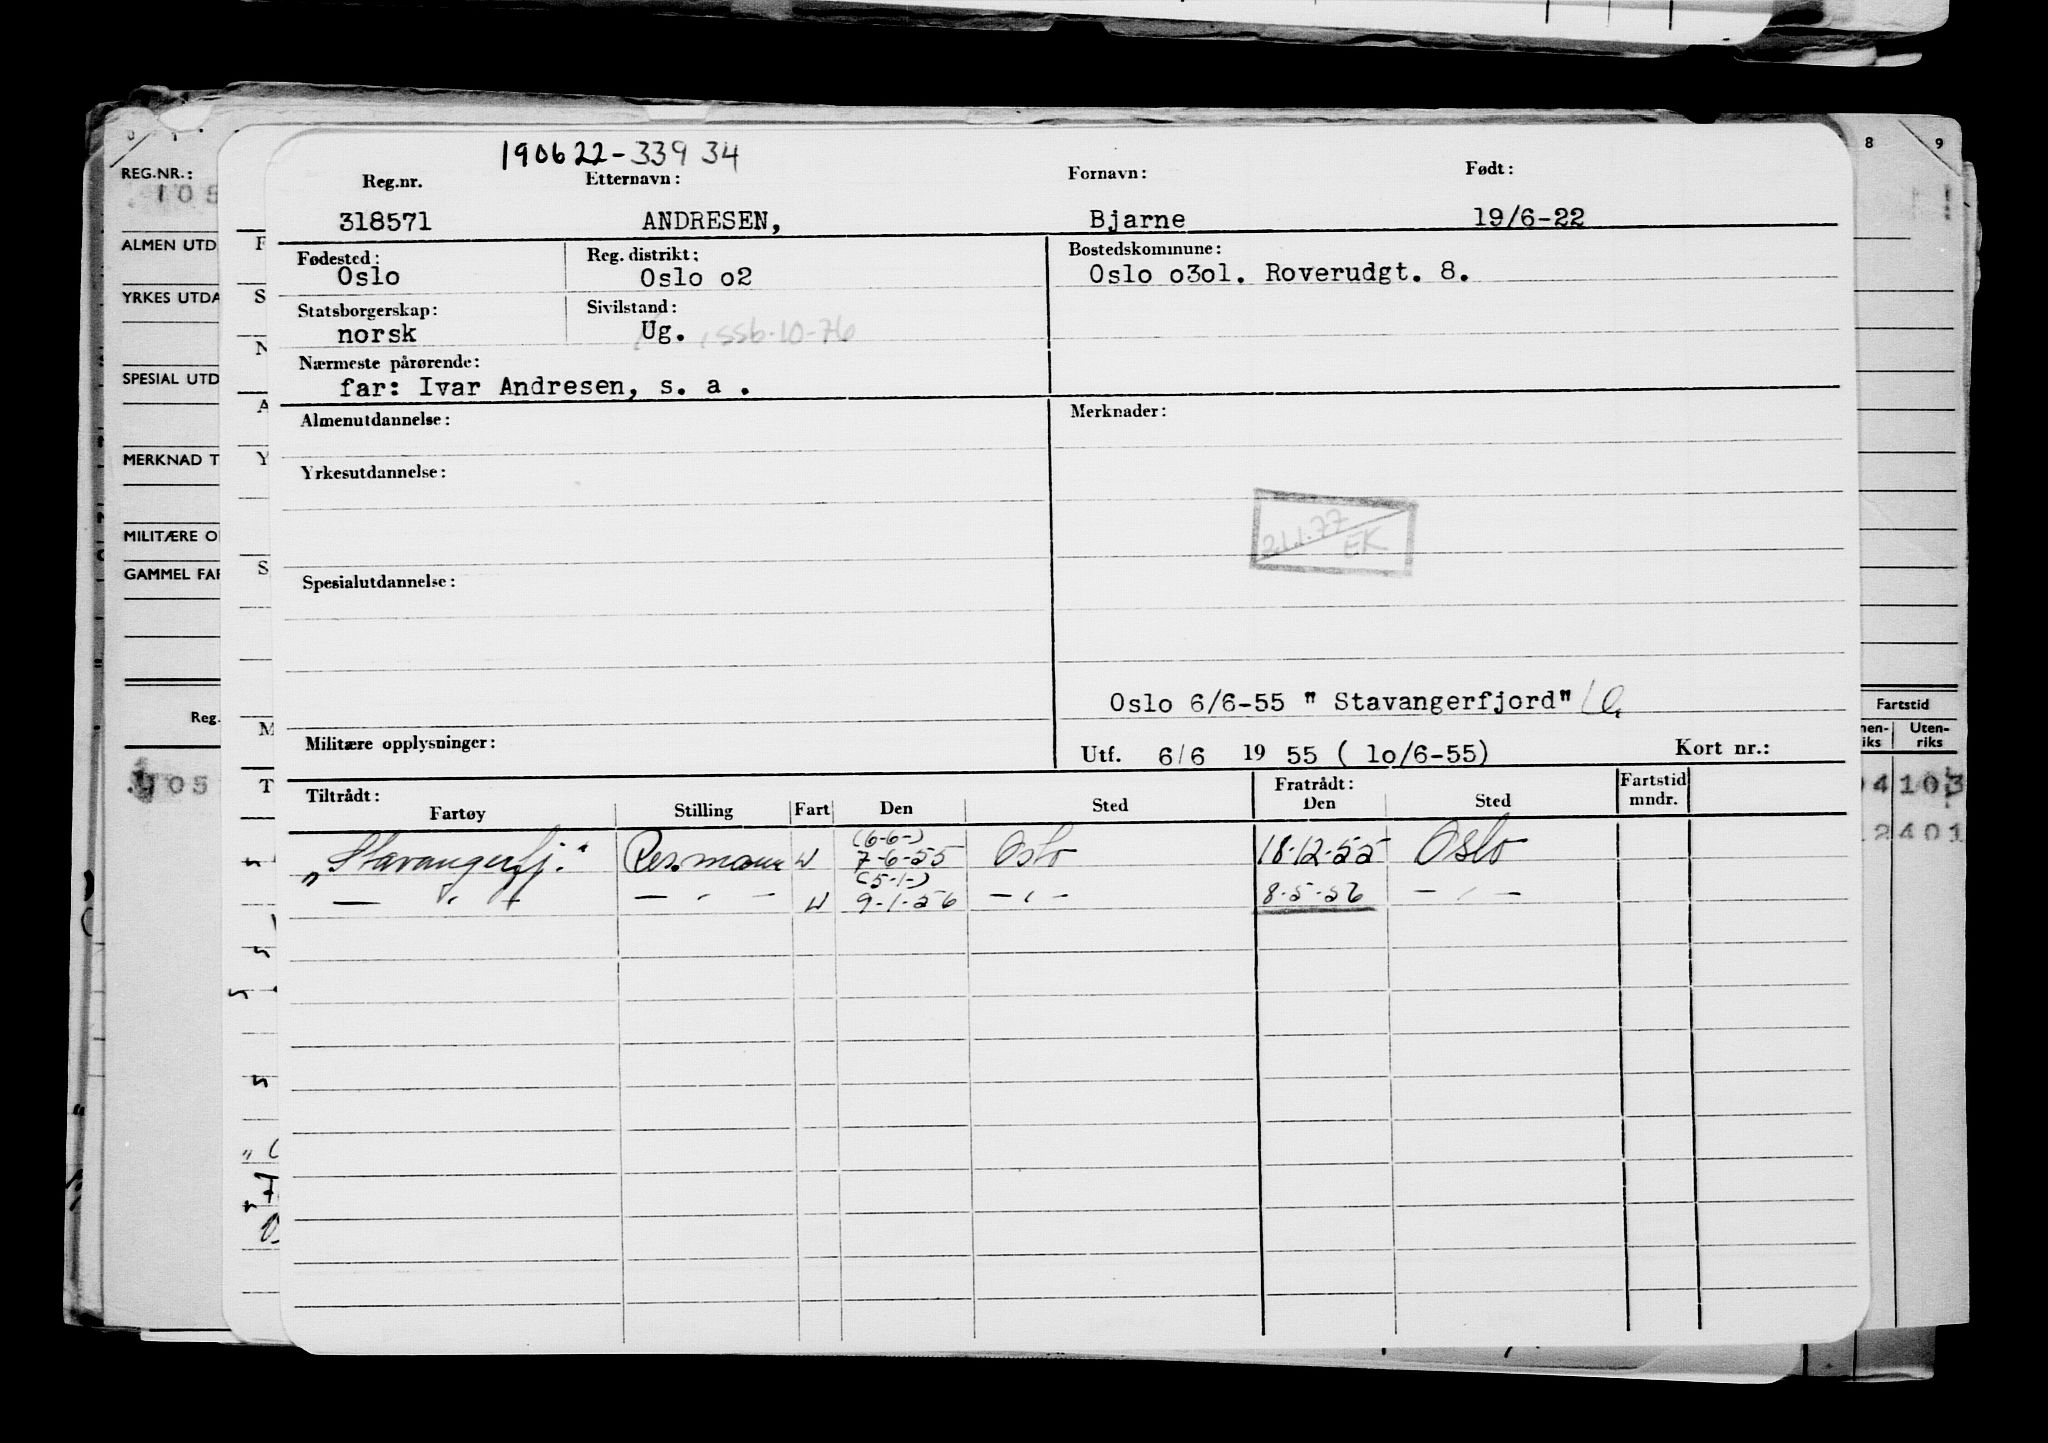 190622-33934
Reg.nr. Etternavn: Fornavn: Født:
318571 ANDRESEN, Bjarne 19/6-22
Fødested: Reg. distrikt: Bostedskommune:
Oslo Oslo o2 Oslo o3o1. Roverudgt. 8.
Statsborgerskap: Sivilstand:
norsk Ug. ssb-10-76
Nærmeste pårørende:
far: Ivar Andresen, s. a .
Almenutdannelse: Merknader:
Yrkesutdannelse:
21.1.77
EK
Spesialutdannelse:
Oslo 6/6-55 " Stavangerfjord"
Militære opplysninger: Utf. 6/6 19 55 ( lo/6-55) Kort nr.:
Tiltrådt: Fratrådt: Fartstid
Fartøy Stilling Fart Den Sted Den Sted mndr.
(6-6-)
„Stavangerfj." W 7-6-55 Oslo 18-12-55 Oslo
(5-1-)
— " — — " — W 9-1-56 — " — 8-5-56 — " —
0 1 8 9
REG.NR.:
ALMEN UTD
YRKES UTDA
SPESIAL UTD
MERKNAD T
MILITÆRE O
GAMMEL FAR
Reg.
F
S
N
A
Y
S
M
T
Fartstid
nen- Uten-
iks riks
04 103
12 401